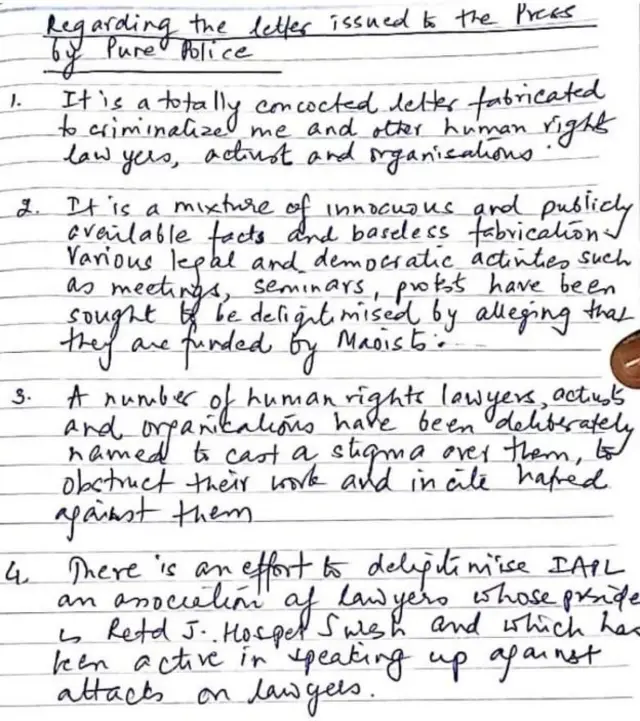 Regarding the letter issued to the Press
by Pune Police
1. It is a totally concocted letter fabricated
to criminalize me and other human right
lawyers, activist and organisations.
2. It is a mixture of innocuous and publicly
available facts and baseless fabrication.
Various legal and democratic activities such
as meetings, seminars, protest have been
sought to be deligitimised by alleging that
they are funded by Maoists.
3. A number of human rights lawyers, activists
and organizations have been deliberately
named to cast a stigma over them, to
obstruct their work and incite hatred
against them
4. There is an effort to deligitimise IAPL
an association of lawyers whose preside
is Retd J. Hospet Suresh and which has
been active in speaking up against
attacks on lawyers.